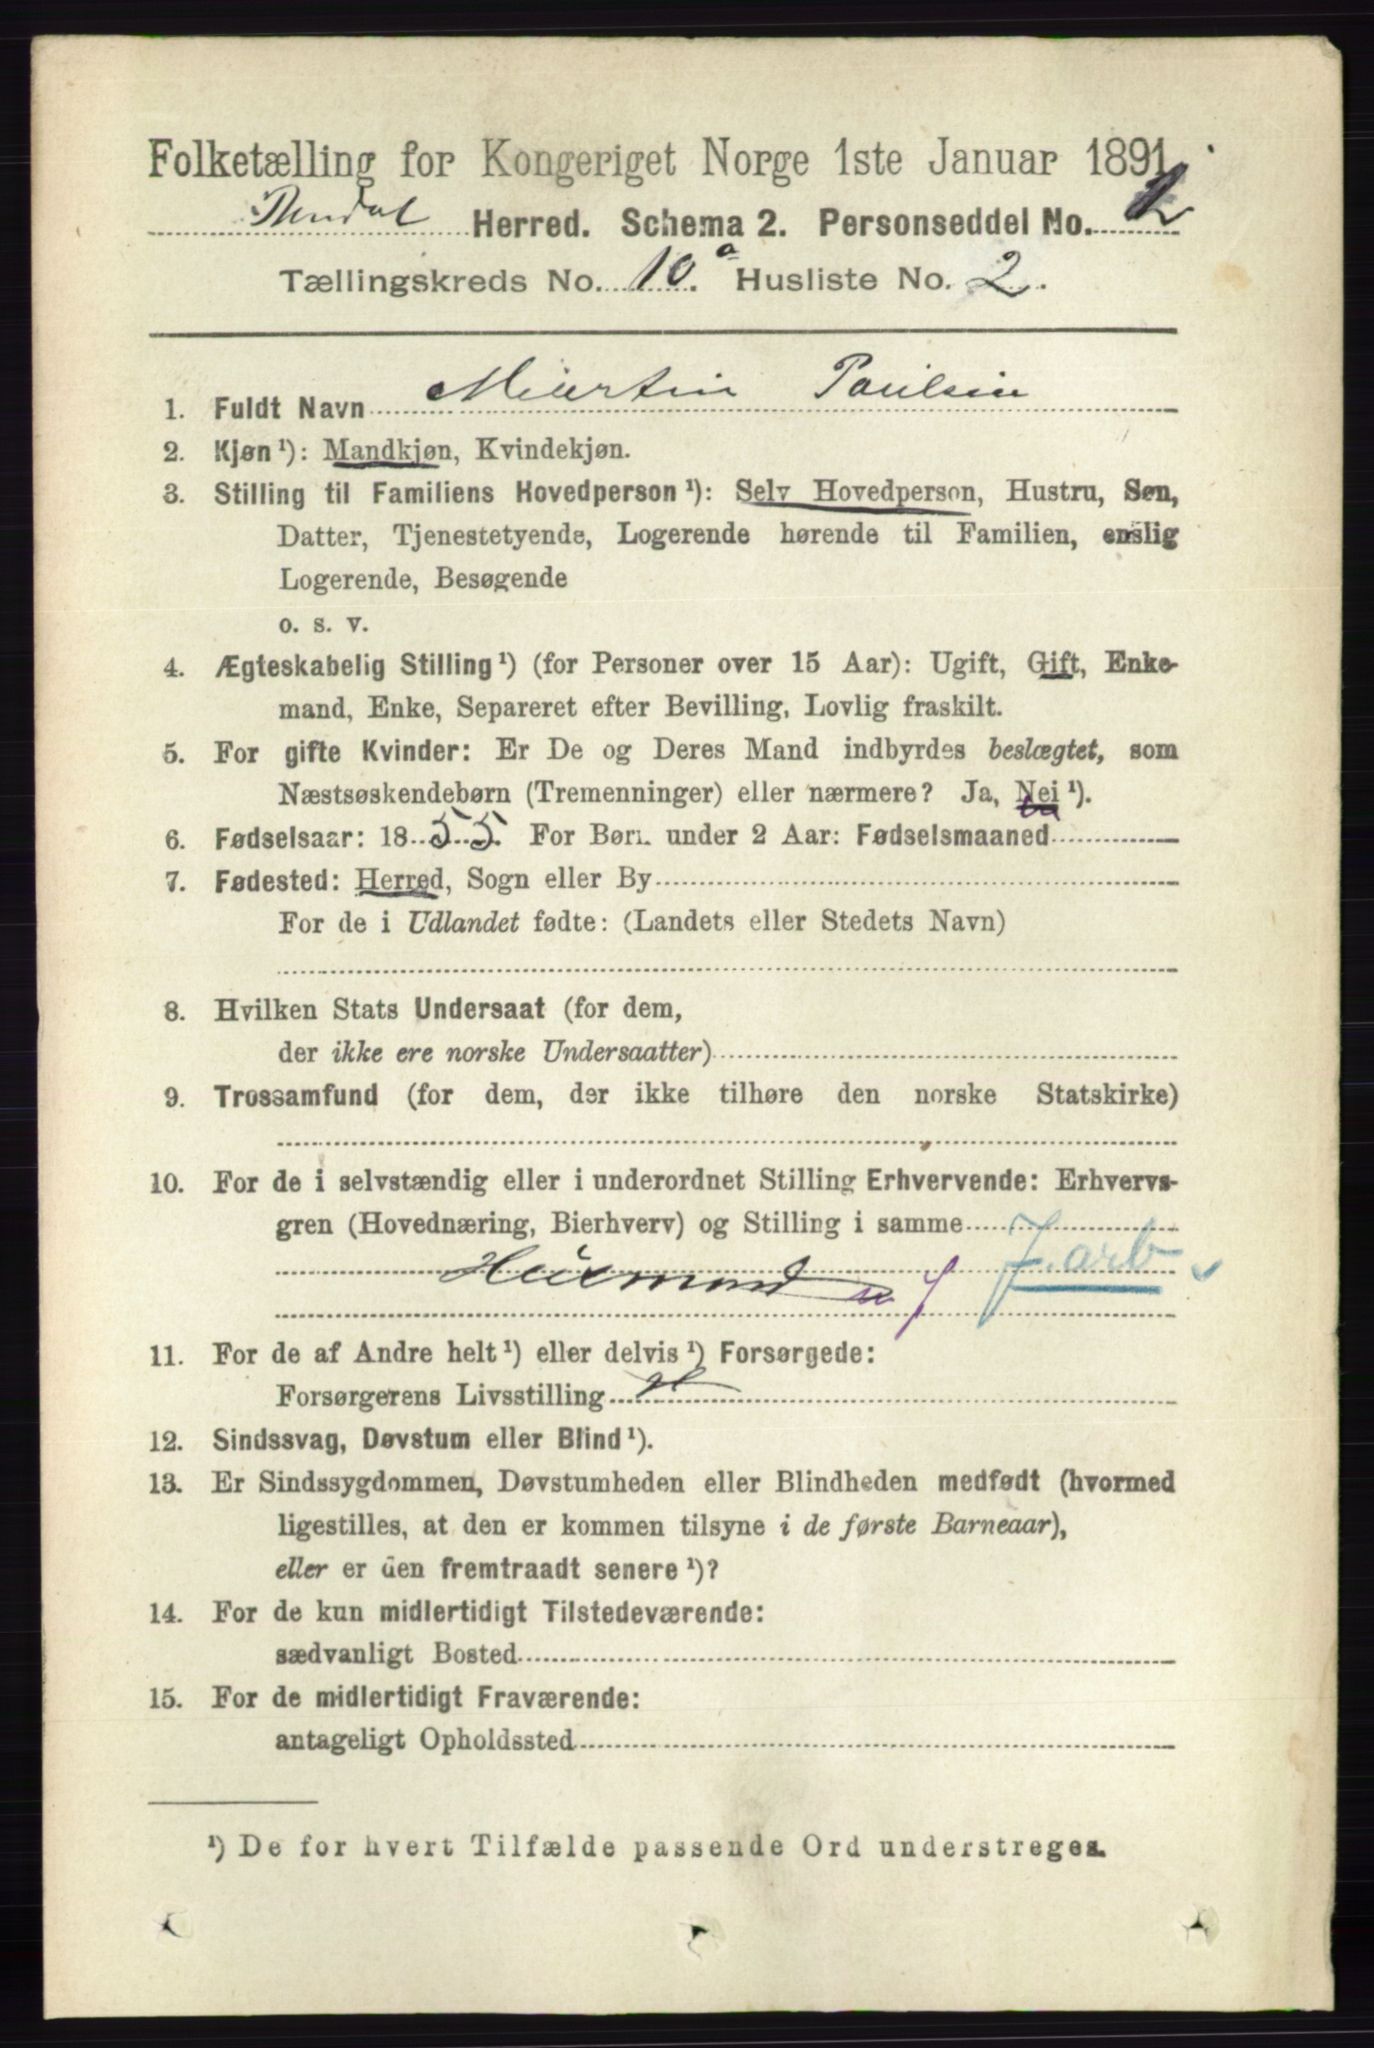 Folketælling for Kongeriget Norge 1ste Januar 1891.
Rendal Herred. Schema 2. Personseddel No. 2
Tællingskreds No. 10a. Husliste No. 2.
1. Fuldt Navn Martin Paulsen
2. Kjøn ¹): Mandkjøn, Kvindekjøn.
3. Stilling til Familiens Hovedperson ¹): Selv Hovedperson, Hustru, Søn,
Datter, Tjenestetyende, Logerende hørende til Familien, enslig
Logerende, Besøgende
o. s. v.
4. Ægteskabelig Stilling ¹) (for Personer over 15 Aar): Ugift, Gift, Enke-
mand, Enke, Separeret efter Bevilling, Lovlig fraskilt.
5. For gifte Kvinder: Er De og Deres Mand indbyrdes beslægtet, som
Næstsøskendebørn (Tremenninger) eller nærmere? Ja, Nei ¹).
6. Fødselsaar: 1855. For Børn under 2 Aar: Fødselsmaaned
7. Fødested: Herred, Sogn eller By
For de i Udlandet fødte: (Landets eller Stedets Navn)
8. Hvilken Stats Undersaat (for dem,
der ikke ere norske Undersaatter)
9. Trossamfund (for dem, der ikke tilhøre den norske Statskirke)
10. For de i selvstændig eller i underordnet Stilling Erhvervende: Erhvervs-
gren (Hovednæring, Bierhverv) og Stilling i samme
Husmand J. arb
11. For de af Andre helt ¹) eller delvis ¹) Forsørgede:
Forsørgerens Livsstilling
12. Sindssvag, Døvstum eller Blind ¹).
13. Er Sindssygdommen, Døvstumheden eller Blindheden medfødt (hvormed
ligestilles, at den er kommen tilsyne i de første Barneaar),
eller er den fremtraadt senere ¹)?
14. For de kun midlertidigt Tilstedeværende:
sædvanligt Bosted
15. For de midlertidigt Fraværende:
antageligt Opholdssted
¹) De for hvert Tilfælde passende Ord understreges.